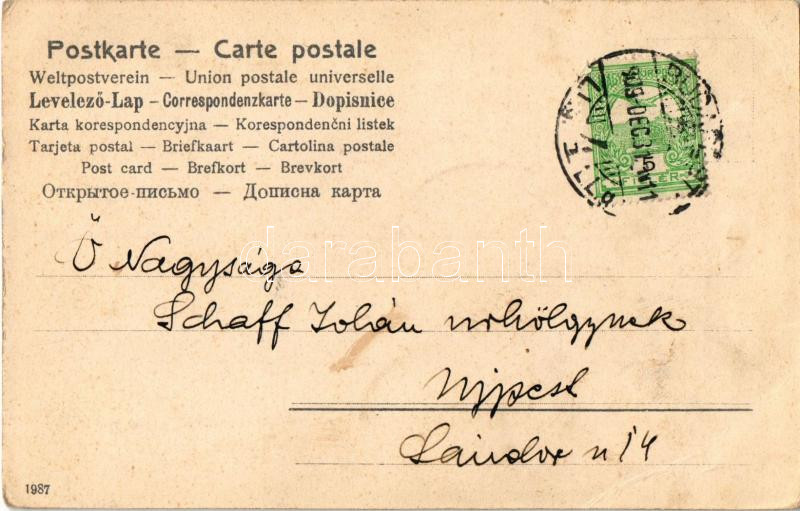 Postkarte — Carte postale
Weltpostverein — Union postale universelle
Levelező-Lap – Correspondenzkarte – Dopisnice
Karta korespondencyjna — Korespondenční listek
Tarjeta postal — Briefkaart — Cartolina postale
Post card — Brefkort — Brevkort
Открытое-письмо — Дописна карта
909 DEC 31
5
Ő Nagysága
darabanth
Schaff Jolán urhölgynek
Ujpest
Sándor u 14
1987